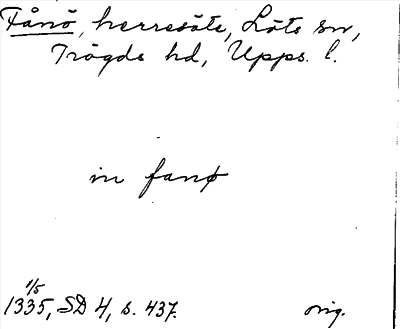 Fånö, herresäte, Löts sn,
Trögds hd, Upps. l.
in fanø
1/5
1335, SD 4, s. 437.
orig.